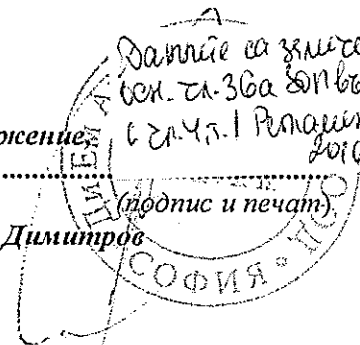 Данните са заличе
осн. чл. 36а ЗОП въ
с чл. 4, т. 1 Регламен
201
жение,
(подпис и печат)
Димитров
ДИЕМ А
СОФИЯ